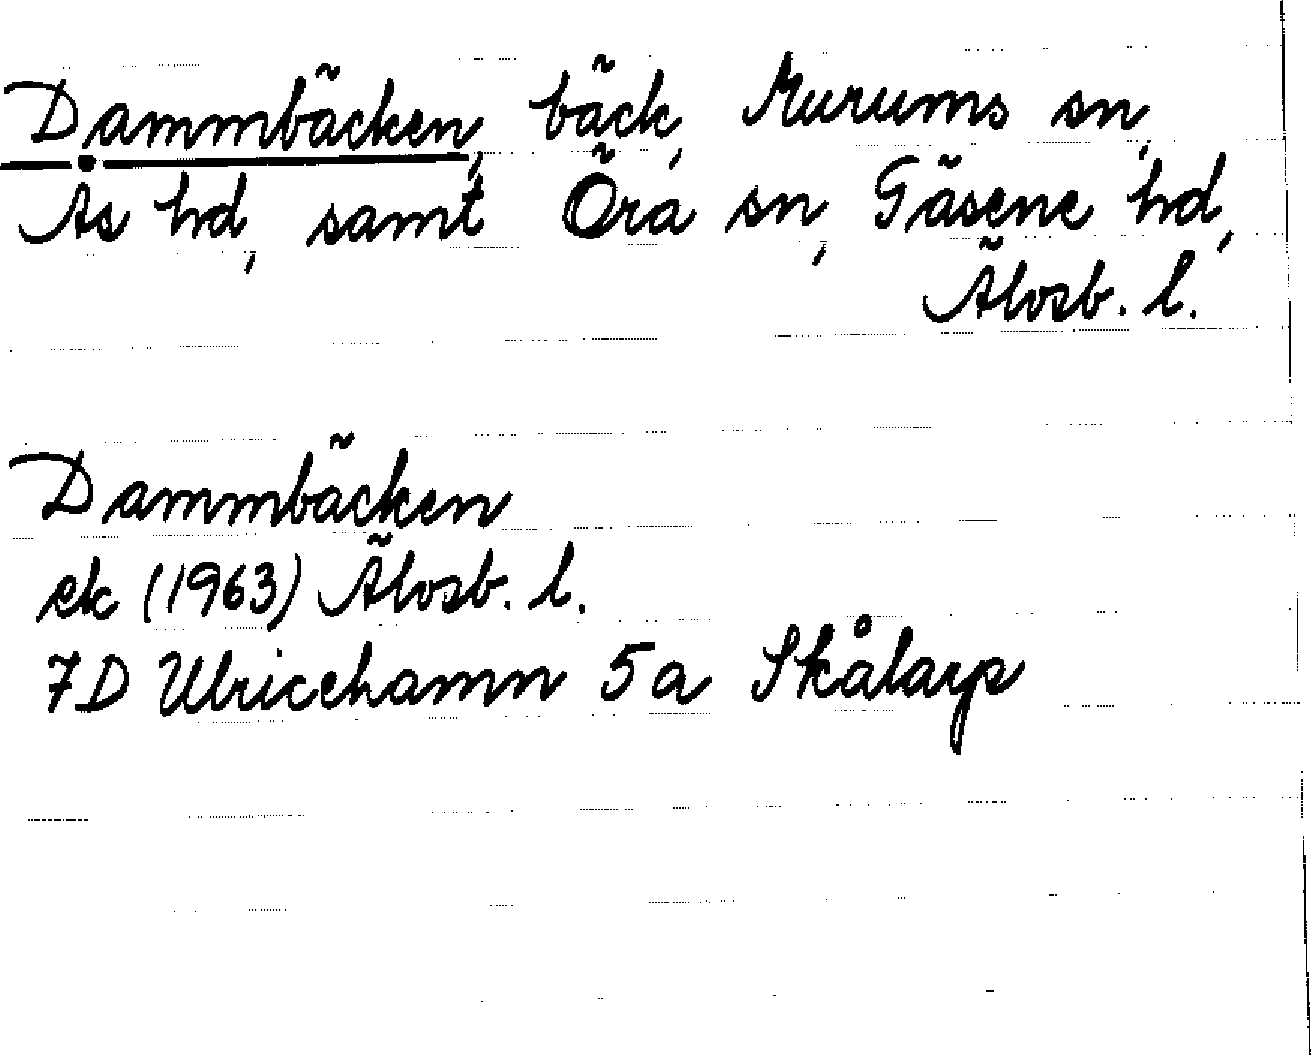 Dammbäcken, bäck, Murums sn,
Ås hd, samt Öra sn, Gäsene hd,
Älvsb. l.
Dammbäcken
ek (1963) Älvsb. l.
7D Ulricehamn 5a Skålarp